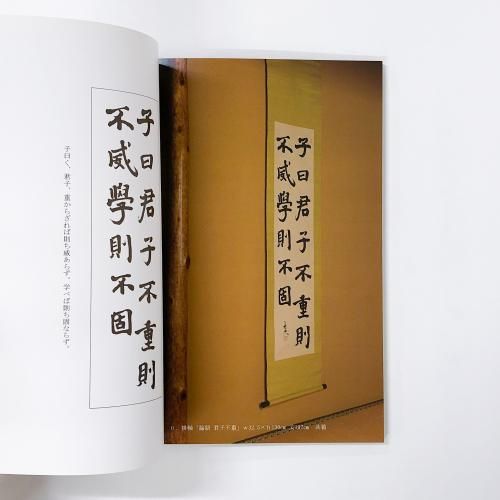 子曰君子不重則
不威學則不固
子曰く、君子、重からざれば則ち威あらず。学べば則ち固ならず。
子曰君子不重則
不威學則不固
掛軸「論語 君子不重」